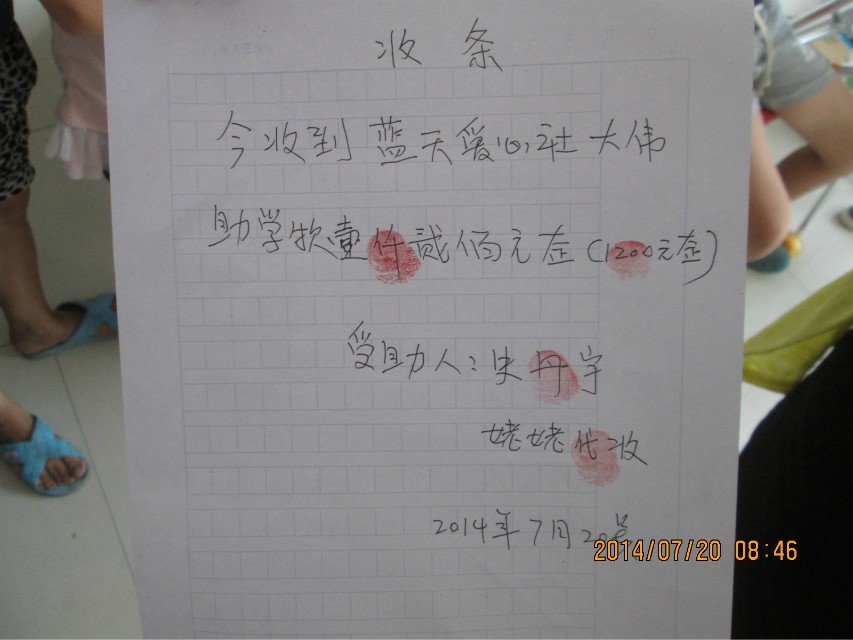 收条
今收到蓝天爱心社大伟
助学款壹仟贰佰元整(1200元整)
受助人:史丹宇
姥姥代收
2014年7月20号
2014/07/20 08:46